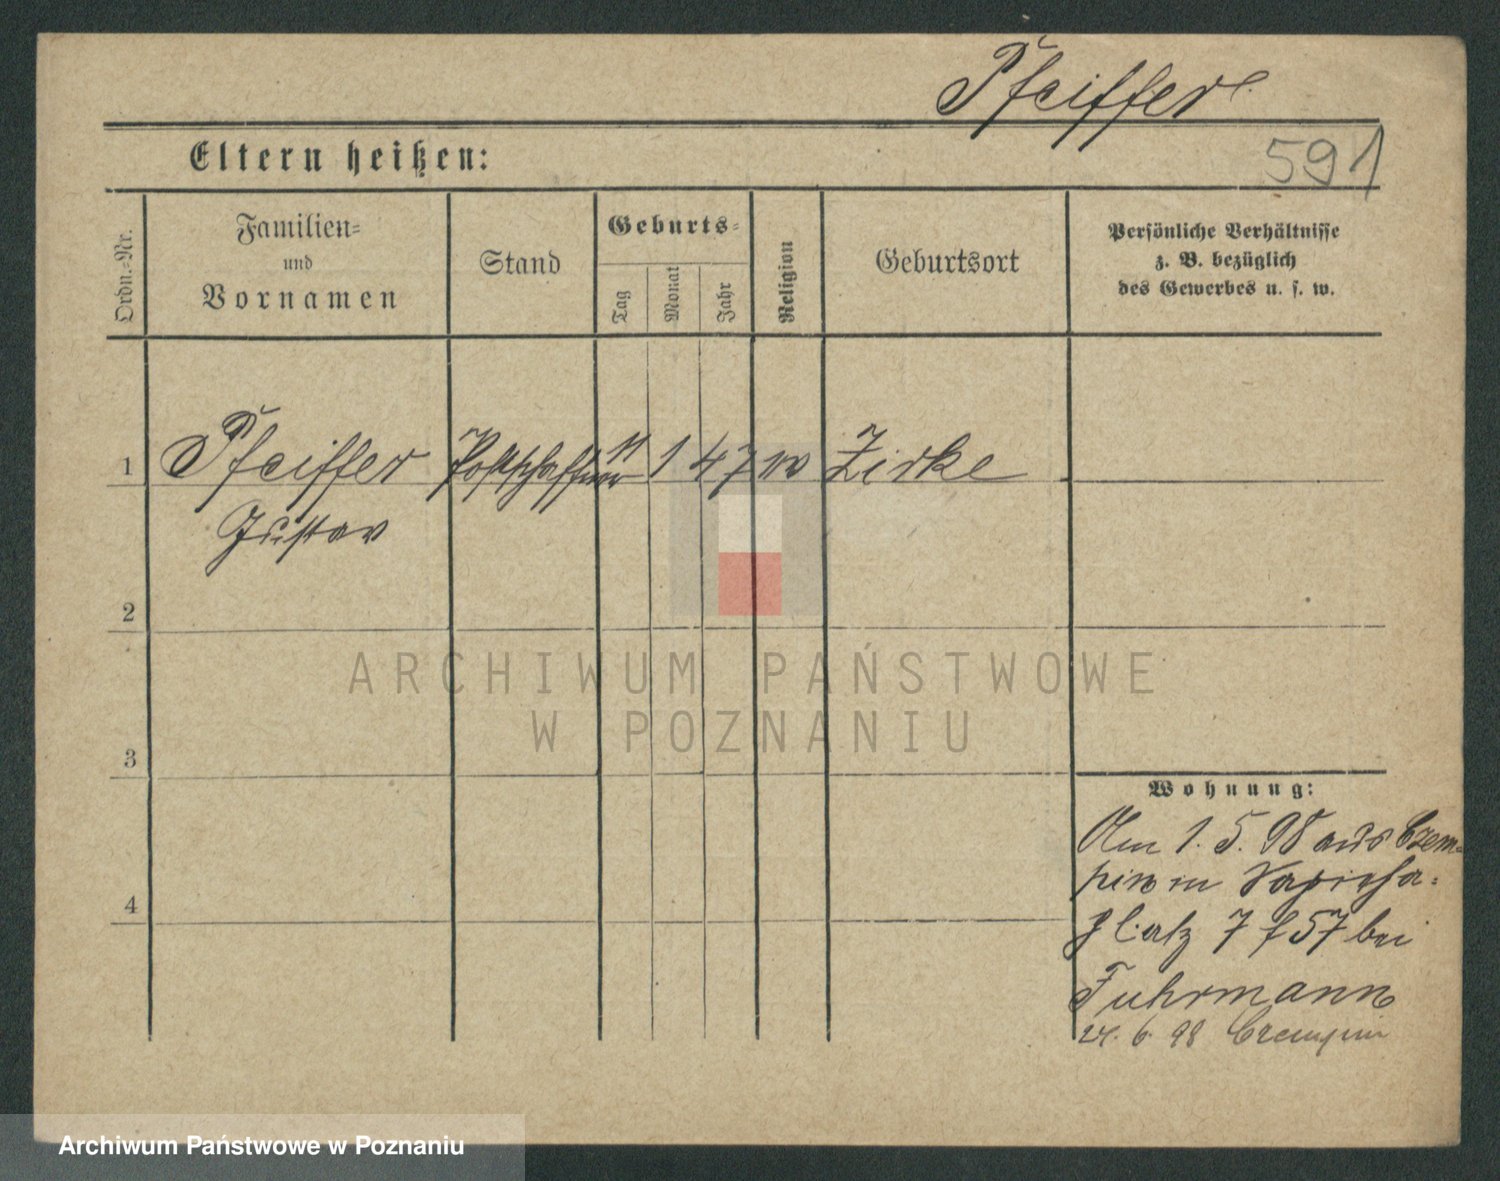 Pfeiffer
591
Eltern heißen:
Ordn.-Nr.
Familien-
und
Vornamen
Stand
Geburts-
Tag
Monat
Jahr
Religion
Geburtsort
Persönliche Verhältnisse
z. B. bezüglich
des Gewerbes u. s. w.
1 Pfeiffer Postschaffner 11 1 47 Zirke
Gustav
2
3
4
Wohnung:
Am 1. 5. 98 aus Czem-
pin in Sapieha-
platz 7 b bei
Fuhrmann
24. 6. 98 Czempin
ARCHIWUM PAŃSTWOWE
W POZNANIU
Archiwum Państwowe w Poznaniu